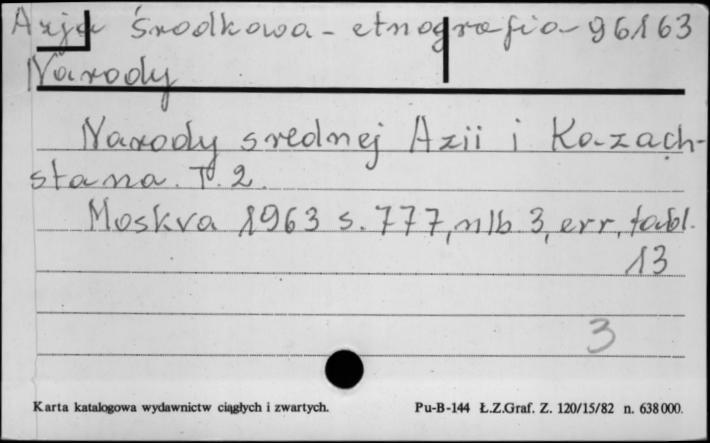 Azja Środkowa - etnografia - 96163
Narody
Narody srednej Azii i Kazach-
stana. T. 2.
Moskva 1963 s. 777, nlb. 3, err., tabl.
13
3
Karta katalogowa wydawnictw ciągłych i zwartych. Pu-B-144 Ł.Z.Graf. Z. 120/15/82 n. 638000.